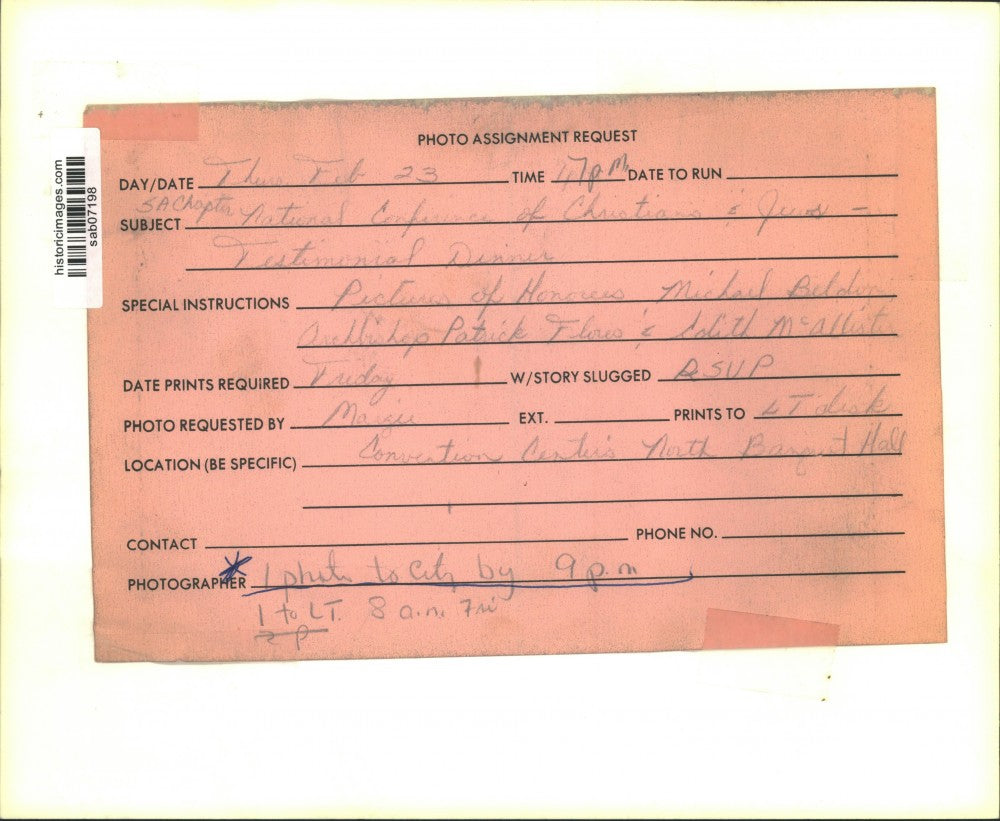 historicimages.com
sab07198
PHOTO ASSIGNMENT REQUEST
DAY/DATE Thurs Feb 23 TIME 7 p.m. DATE TO RUN
SA Chapter
SUBJECT National Conference of Christians & Jews -
Testimonial Dinner
SPECIAL INSTRUCTIONS Pictures of Honorees Michael Beldon
Archbishop Patrick Flores & Edith McAllister
DATE PRINTS REQUIRED Friday W/STORY SLUGGED RSVP
PHOTO REQUESTED BY EXT. PRINTS TO LT desk
LOCATION (BE SPECIFIC) Convention Center's North Banquet Hall
CONTACT PHONE NO.
PHOTOGRAPHER * 1 photo to City by 9 p.m
1 to LT. 8 a.m. Fri